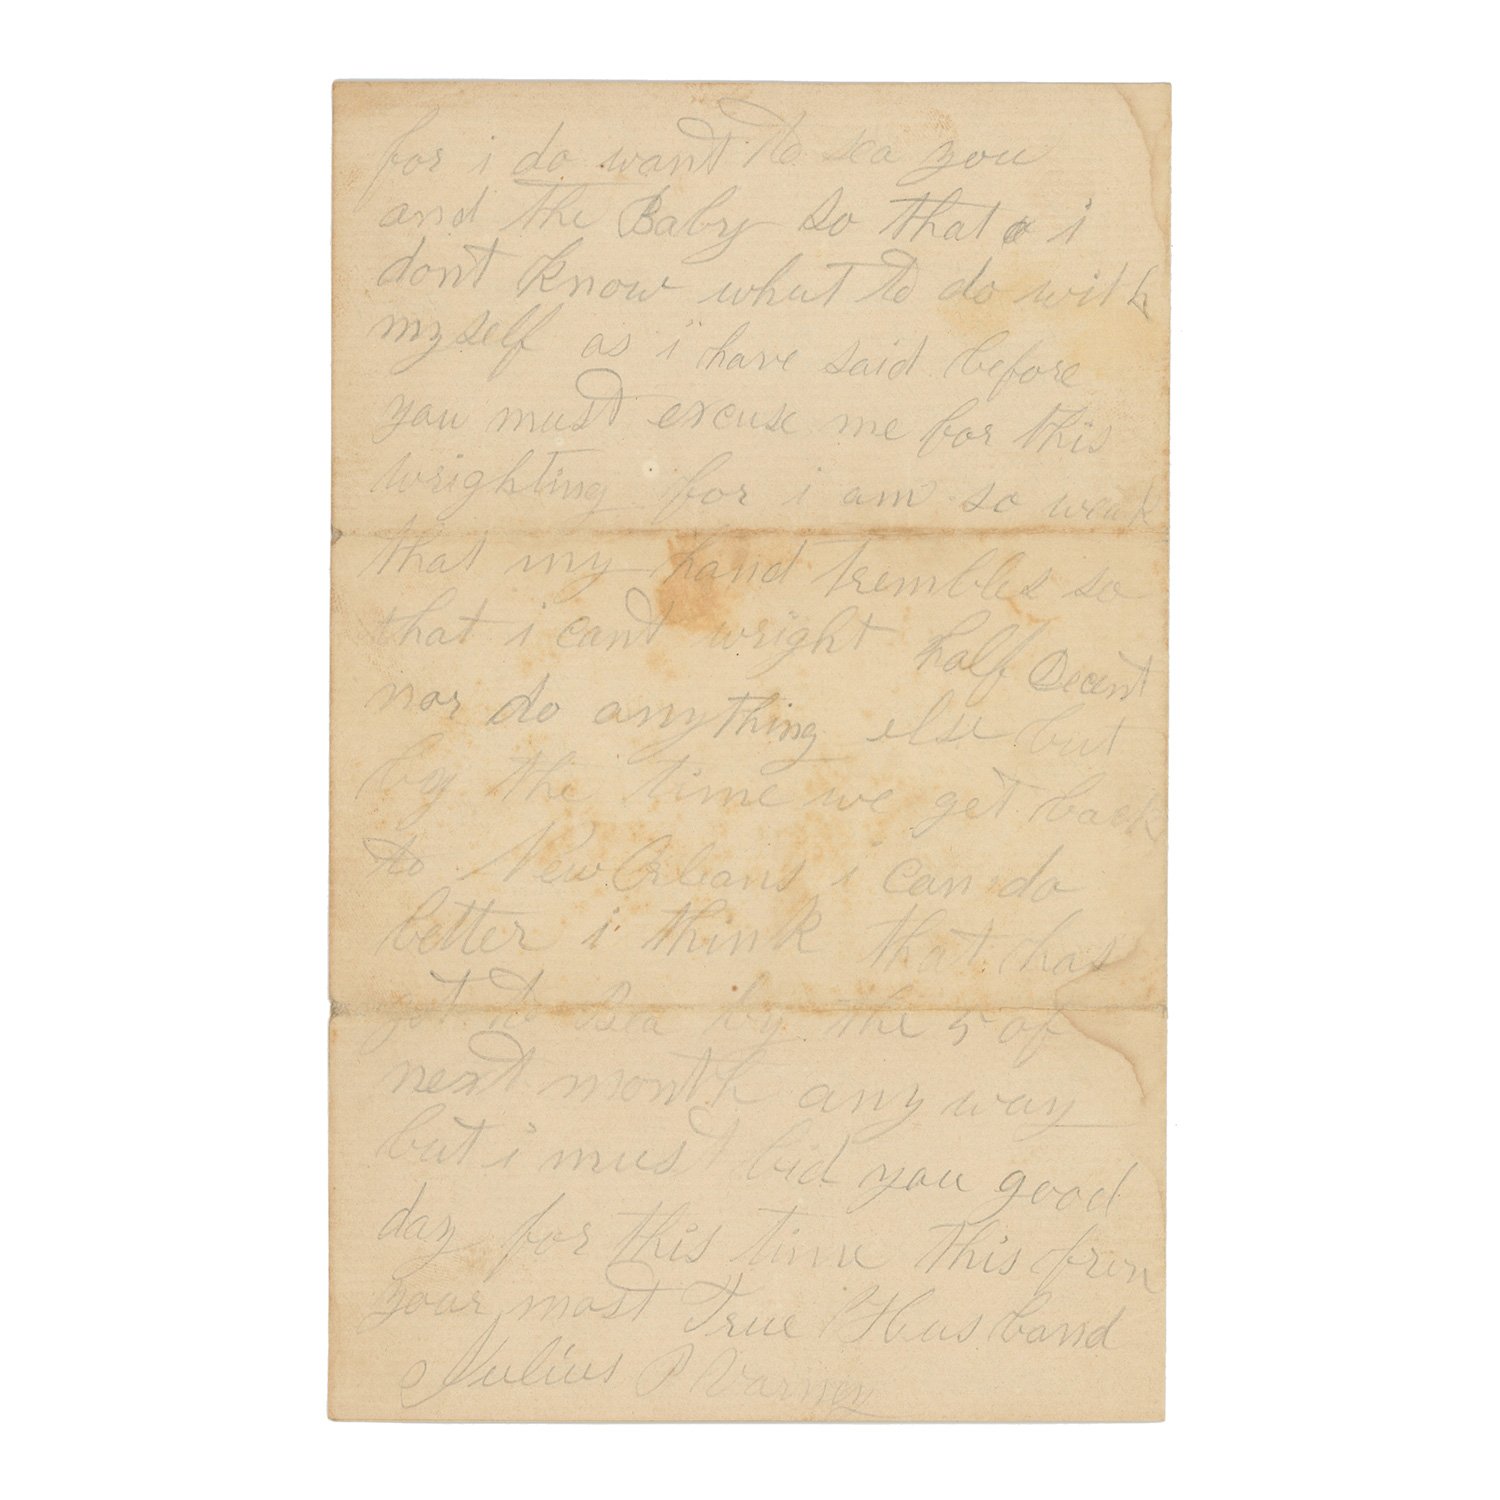 for i do want to sea you
and the Baby so that i
dont know what to do with
myself as i have said before
you must excuse me for this
wrighting for i am so weak
that my hand trembles so
that i cant wright half Decent
nor do anything else but
by the time we get back
to New Orleans i can do
better i think that has
got to Bea by the 5 of
next month any way
but i must bid you good
day for this time this from
your most True Husband
Julius P Varney